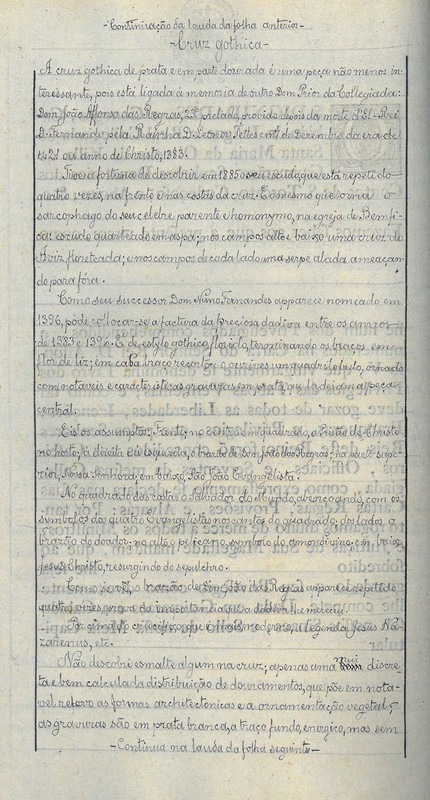 - Continuração da lauda da folha anterior -
- Cruz gothica -
A cruz gothica de prata e em parte doirada é uma peça não menos in-
teressante, pois está ligada á memoria de outro Dom Prior da Collegiada:
Dom João Affonso das Regras, 23º prelado, provido depois da morte d'El-Rei
D. Fernando pela Rainha D. Leonor Telles em de Dezembro da era de
1421 ou anno de Christo, 1383.
Tive a fortuna de descobrir em 1885 o seu escudo, que está repetido
quatro vezes, na frente e nas costas da cruz. É o mesmo que orna o
sarcophago do seu celebre parente e homonymo, na egreja de Bemfi-
ca: escudo quarteado em aspa; nos campos alto e baixo uma cruz de
Aviz floreteada; e nos campos de cada lado uma serpe alada ameaçan-
do para fóra.
Como seu successor Dom Nuno Fernandes apparece nomeado em
1396, póde collocar-se a factura da preciosa dadiva entre os annos
de 1383 e 1396. É de estylo gothico florido, terminando os braços em
flor de liz; em cada braço recortou o ourives um quadrifolio, ornado
com notaveis e caracteristicas gravuras em prata, que ladeiam a peça
central.
Eis os assumptos: Frente; no centro, em quadrado, a Prisão de Christo
no horto; á direita e á esquerda, o brazão de Dom João das Regras; na parte supe-
rior, Nossa Senhora; em baixo, São João Evangelista.
No quadrado das costas o Salvador do Mundo, abençoando, com os
symbolos dos quatro Evangelistas nos cantos do quadrado; dos lados o
brazão do doador; no alto o pelicano, symbolo do amor divino; em baixo
Jesus Christo, resurgindo do sepulcro.
Como se vê, o brazão de Dom João das Regras apparece repetido
quatro vezes, prova da importancia que a dadiva lhe mereceu.
Por cima do crucifixo, que é mais moderno, a legenda Jesus Na-
zarenus, etc.
Não descobri esmalte algum na cruz; apenas uma mui discre-
ta e bem calculada distribuição de douramentos, que põe em nota-
vel relevo as formas architectonicas e a ornamentação vegetal;
as gravuras são em prata branca, a traço fundo, energico, mas sem
- Continua na lauda da folha seguinte -